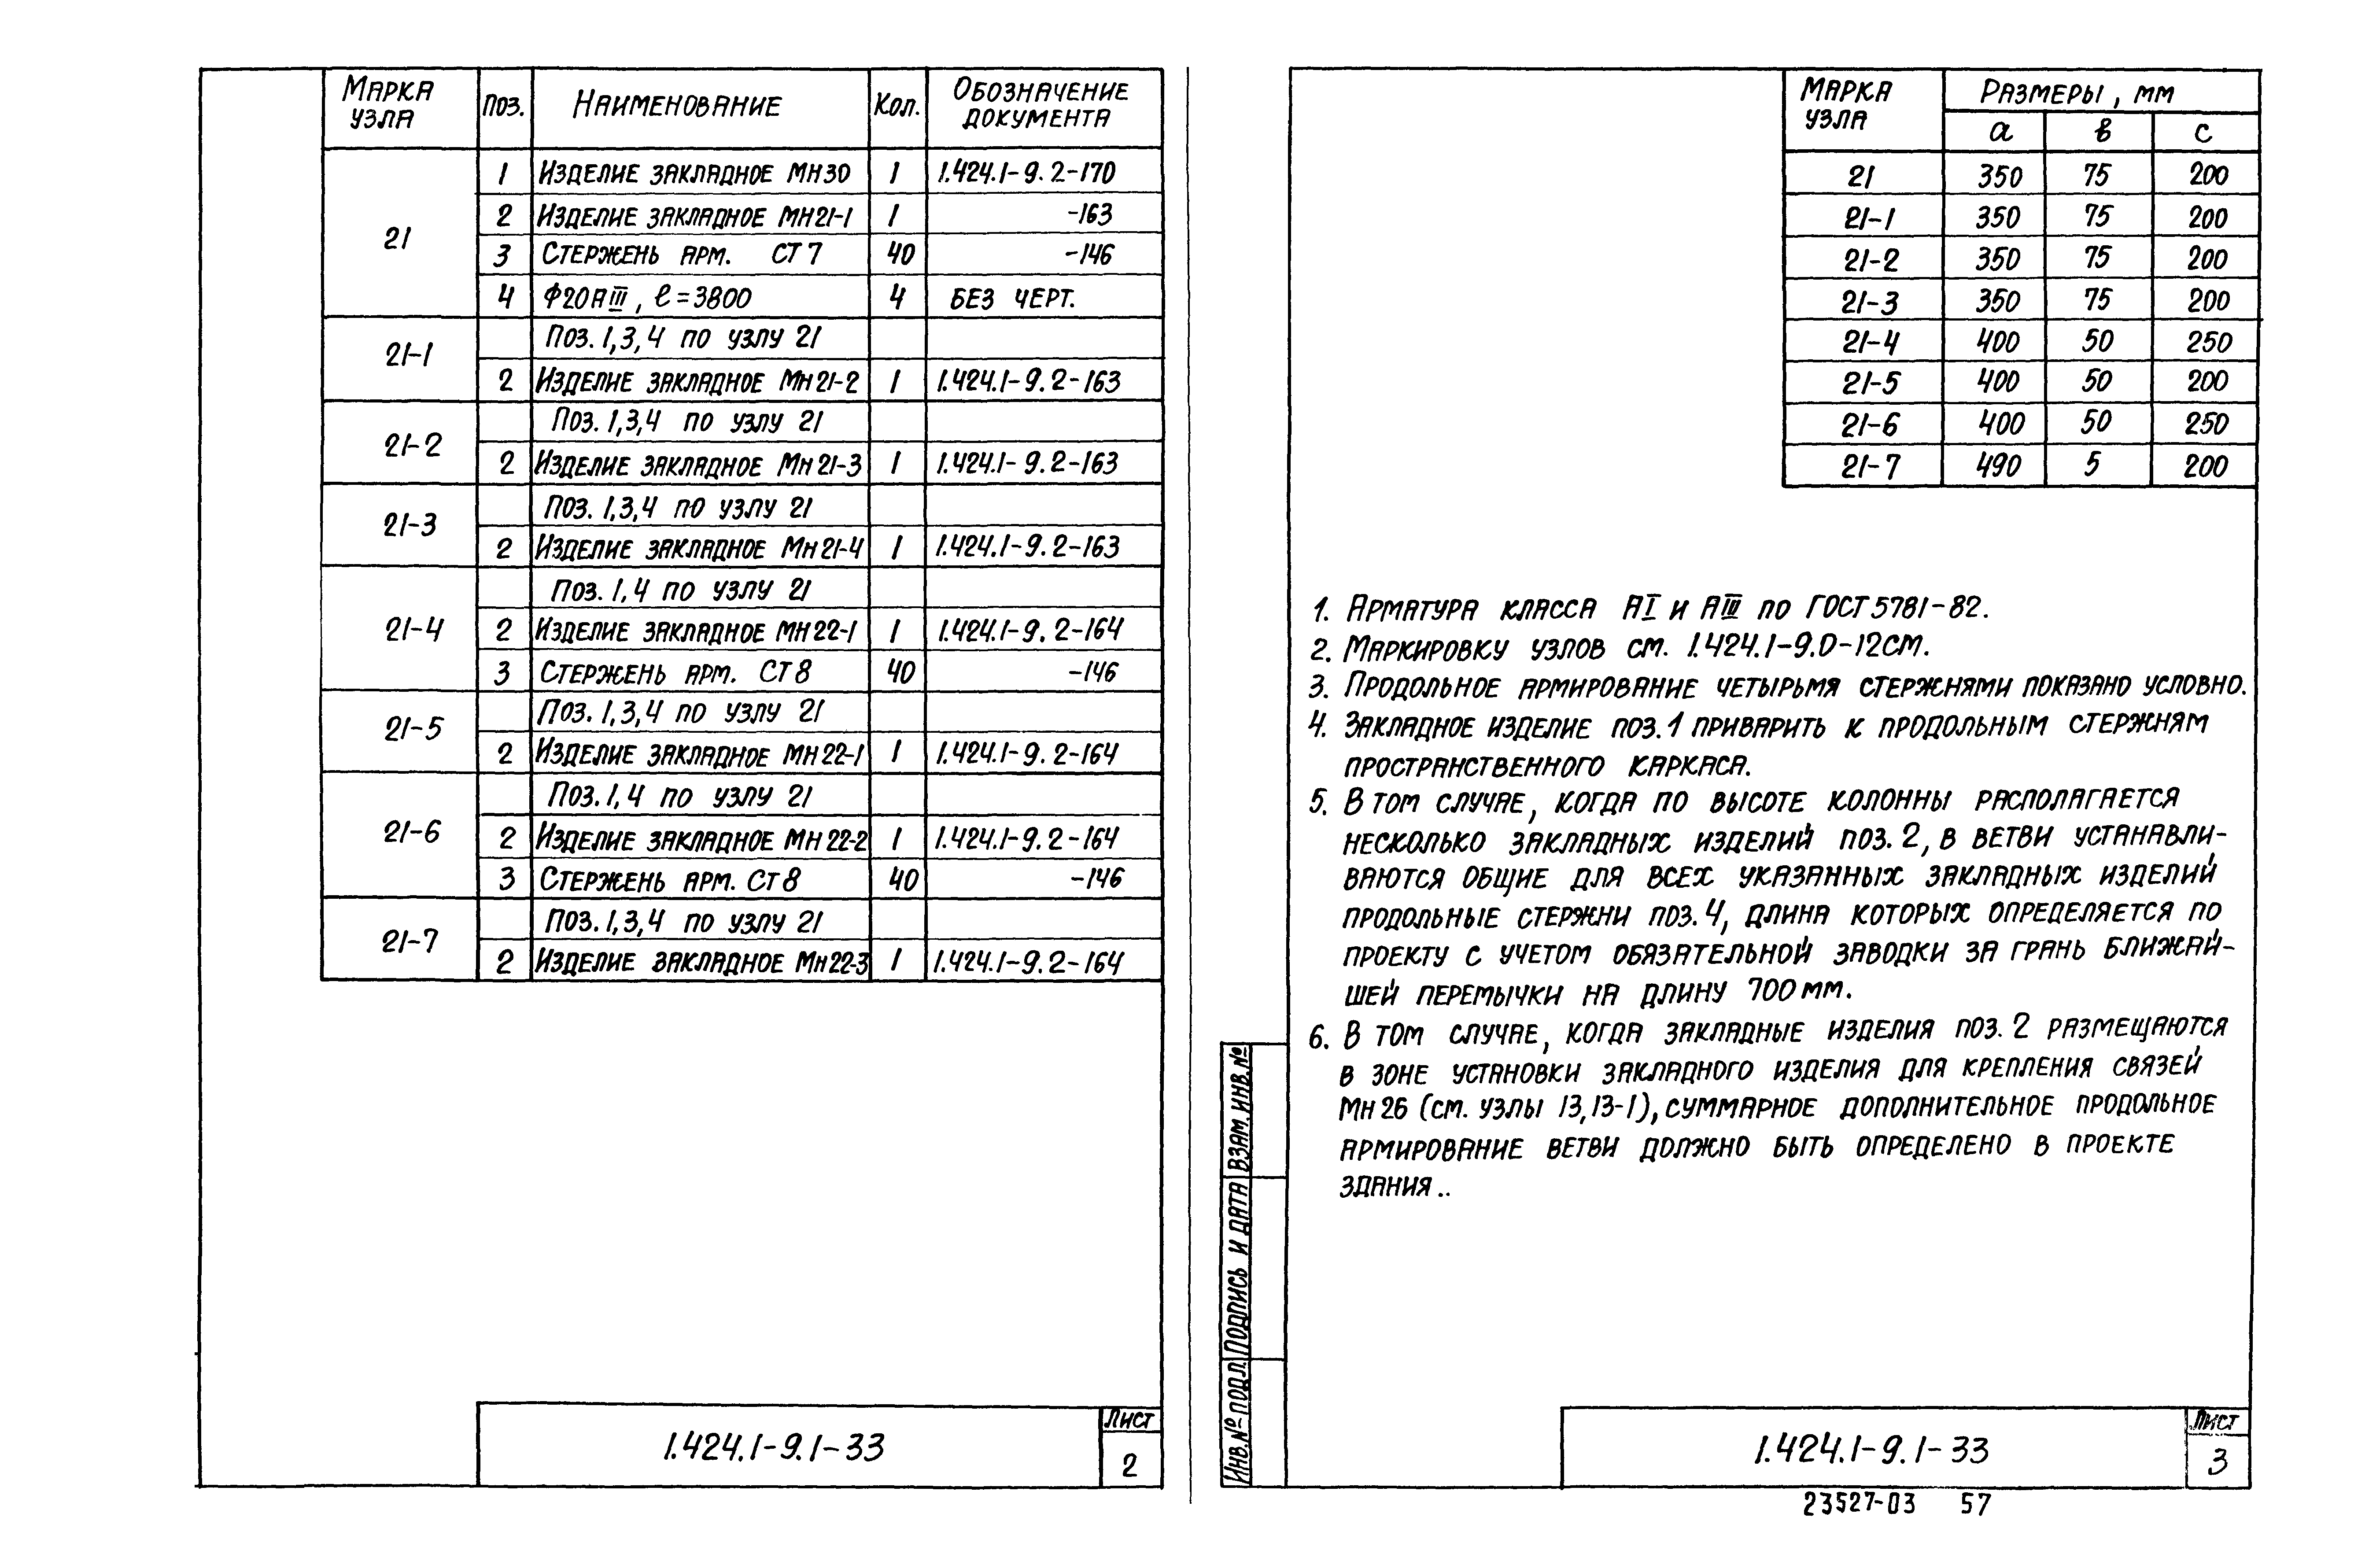 Марка узла | Поз. | Наименование | Кол. | Обозначение документа
21 | 1 | Изделие закладное МН30 | 1 | 1.424.1-9.2-170
2 | Изделие закладное МН21-1 | 1 | -163
3 | Стержень арм. СТ7 | 40 | -146
4 | Ф20АIII, ℓ=3800 | 4 | без черт.
21-1 | Поз. 1,3,4 по узлу 21
2 | Изделие закладное Мн21-2 | 1 | 1.424.1-9.2-163
21-2 | Поз. 1,3,4 по узлу 21
2 | Изделие закладное Мн21-3 | 1 | 1.424.1-9.2-163
21-3 | Поз. 1,3,4 по узлу 21
2 | Изделие закладное Мн21-4 | 1 | 1.424.1-9.2-163
21-4 | Поз. 1,4 по узлу 21
2 | Изделие закладное МН22-1 | 1 | 1.424.1-9.2-164
3 | Стержень арм. СТ8 | 40 | -146
21-5 | Поз. 1,3,4 по узлу 21
2 | Изделие закладное МН22-1 | 1 | 1.424.1-9.2-164
21-6 | Поз. 1,4 по узлу 21
2 | Изделие закладное МН22-2 | 1 | 1.424.1-9.2-164
3 | Стержень арм. Ст8 | 40 | -146
21-7 | Поз. 1,3,4 по узлу 21
2 | Изделие закладное Мн22-3 | 1 | 1.424.1-9.2-164
1.424.1-9.1-33
Лист
2
Марка узла | Размеры, мм
а | в | с
21 | 350 | 75 | 200
21-1 | 350 | 75 | 200
21-2 | 350 | 75 | 200
21-3 | 350 | 75 | 200
21-4 | 400 | 50 | 250
21-5 | 400 | 50 | 200
21-6 | 400 | 50 | 250
21-7 | 490 | 5 | 200
1. Арматура класса АI и АIII по ГОСТ 5781-82.
2. Маркировку узлов см. 1.424.1-9.0-12СМ.
3. Продольное армирование четырьмя стержнями показано условно.
4. Закладное изделие поз.1 приварить к продольным стержням
пространственного каркаса.
5. В том случае, когда по высоте колонны располагается
несколько закладных изделий поз. 2, в ветви устанавли-
ваются общие для всех указанных закладных изделий
продольные стержни поз. 4, длина которых определяется по
проекту с учетом обязательной заводки за грань ближай-
шей перемычки на длину 700мм.
6. В том случае, когда закладные изделия поз. 2 размещаются
в зоне установки закладного изделия для крепления связей
Мн26 (см. узлы 13,13-1), суммарное дополнительное продольное
армирование ветви должно быть определено в проекте
здания..
Инв.№ подл. Подпись и дата Взам.инв.№
1.424.1-9.1-33
Лист
3
23527-03 57